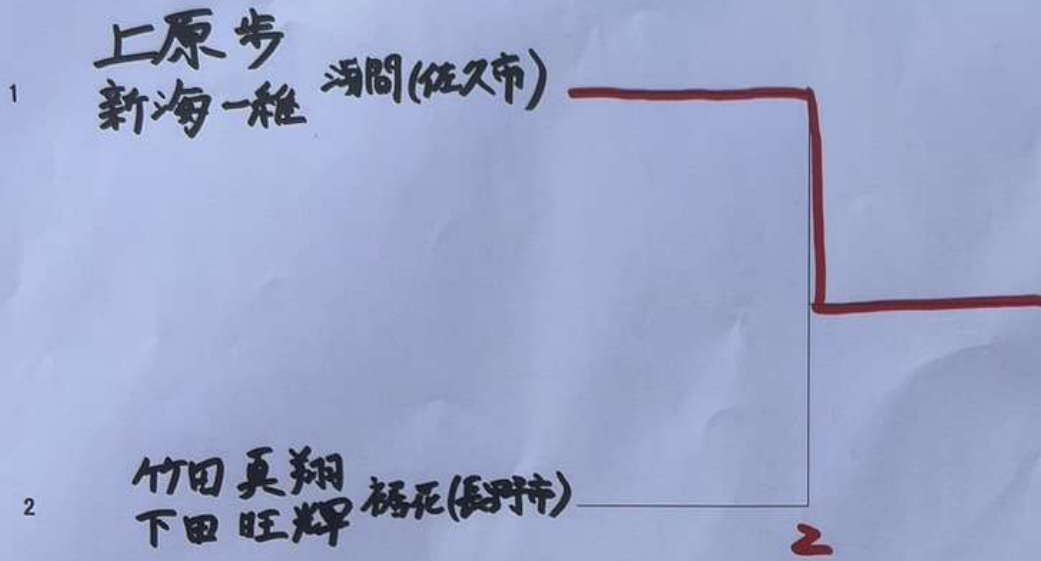 1
上原 歩
新海 一稚 浅間(佐久市)
2
竹田 真翔
下田 旺輝 裾花(長野市)
2